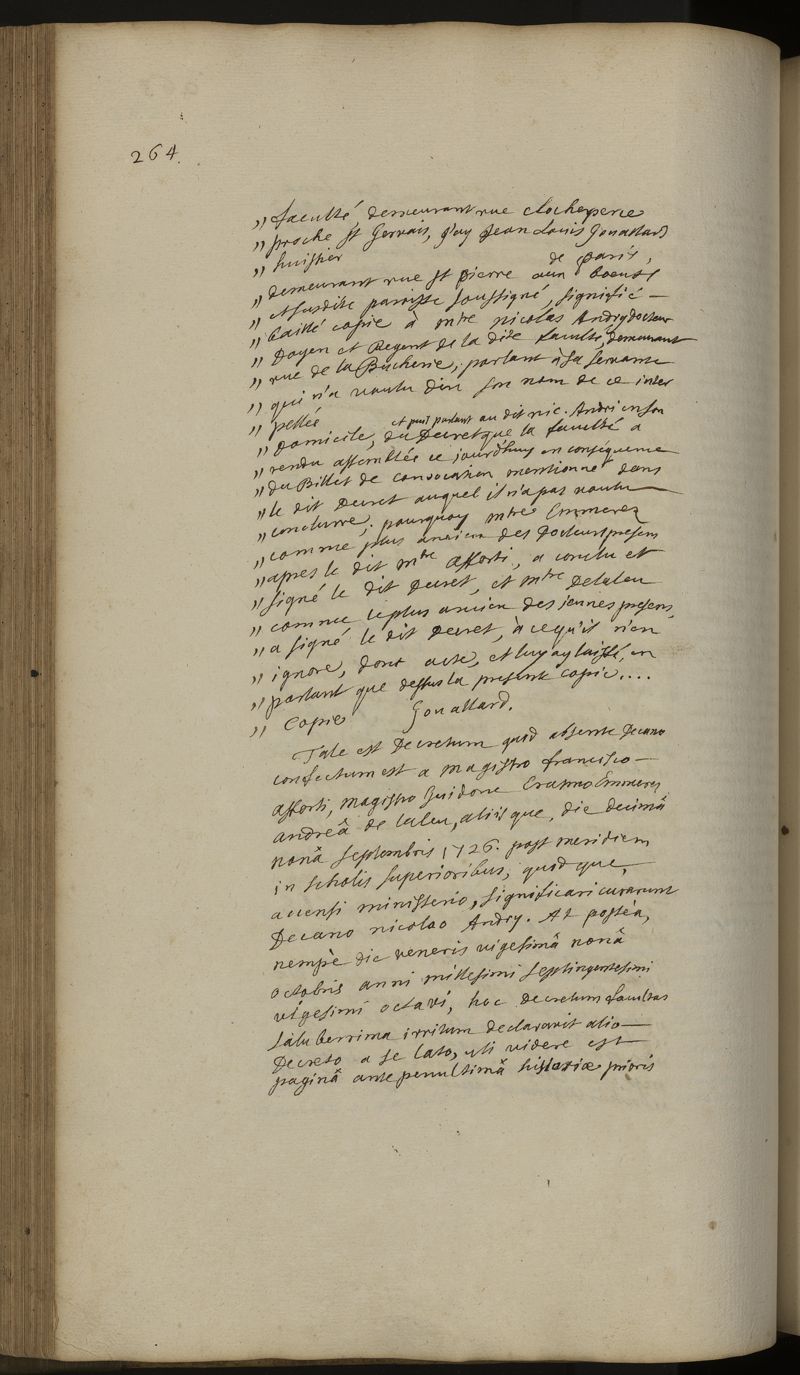 264.
,, faculté demeurant rue clocheperce
,, proche st Gervais, j'ay Jean Louis Gouallard
,, huissier de paris,
,, demeurant rue st pierre aux boeufs
,, et susdite paroisse soussigné, signifié —
,, baillé copie à mtre nicolas Andry docteur
,, Doyen et Regent de la dite faculté, demeurant
,, rue de la Bucherie, parlant à sa servante
,, qui n'a voulu dire son nom de ce inter
,, pellée et puis parlant au dit nic. Andri en son
,, domicile, du Decret que la faculté a
,, rendu assemblée ce jourd'huy en conséquence
,, du Billet de convocation mentionné dans
,, le dit Decret auquel il n'a pas voulu —
,, conclurre; pourquoy mtre Emmerez
,, comme plus ancien des Docteurs presens
,, apres le dit mtre Afforti, a conclu et
,, signé le dit Decret, et mtre Delaleu
,, comme le plus ancien des jeunes presens,
,, a signé le dit Decret, à ce qu'il n'en
,, ignore, dont acte, et luy ay laissé, en
,, parlant que dessus la presente copie....
,, Copie Gouallard.
Tale est Decretum quod absente Decano
confectum est a Magistro francisco —
Afforti, Magistro Guidone Erasmo Emmerez
andreâ de laleu, aliisque, die decimâ
nonâ septembris 1726. post meridiem
in scholis superioribus, quod que,
accensi ministerio, significari curarunt
Decano nicolao Andry. At posteà,
nempè die veneris vigesimâ nonâ
octobris anni millesimi septingentesimi
vigesimi octavi, hoc decretum facultas
saluberrima irritum declaravit alio —
Decreto a se lato, uti videre est
paginâ antepenultimâ historiæ prioris